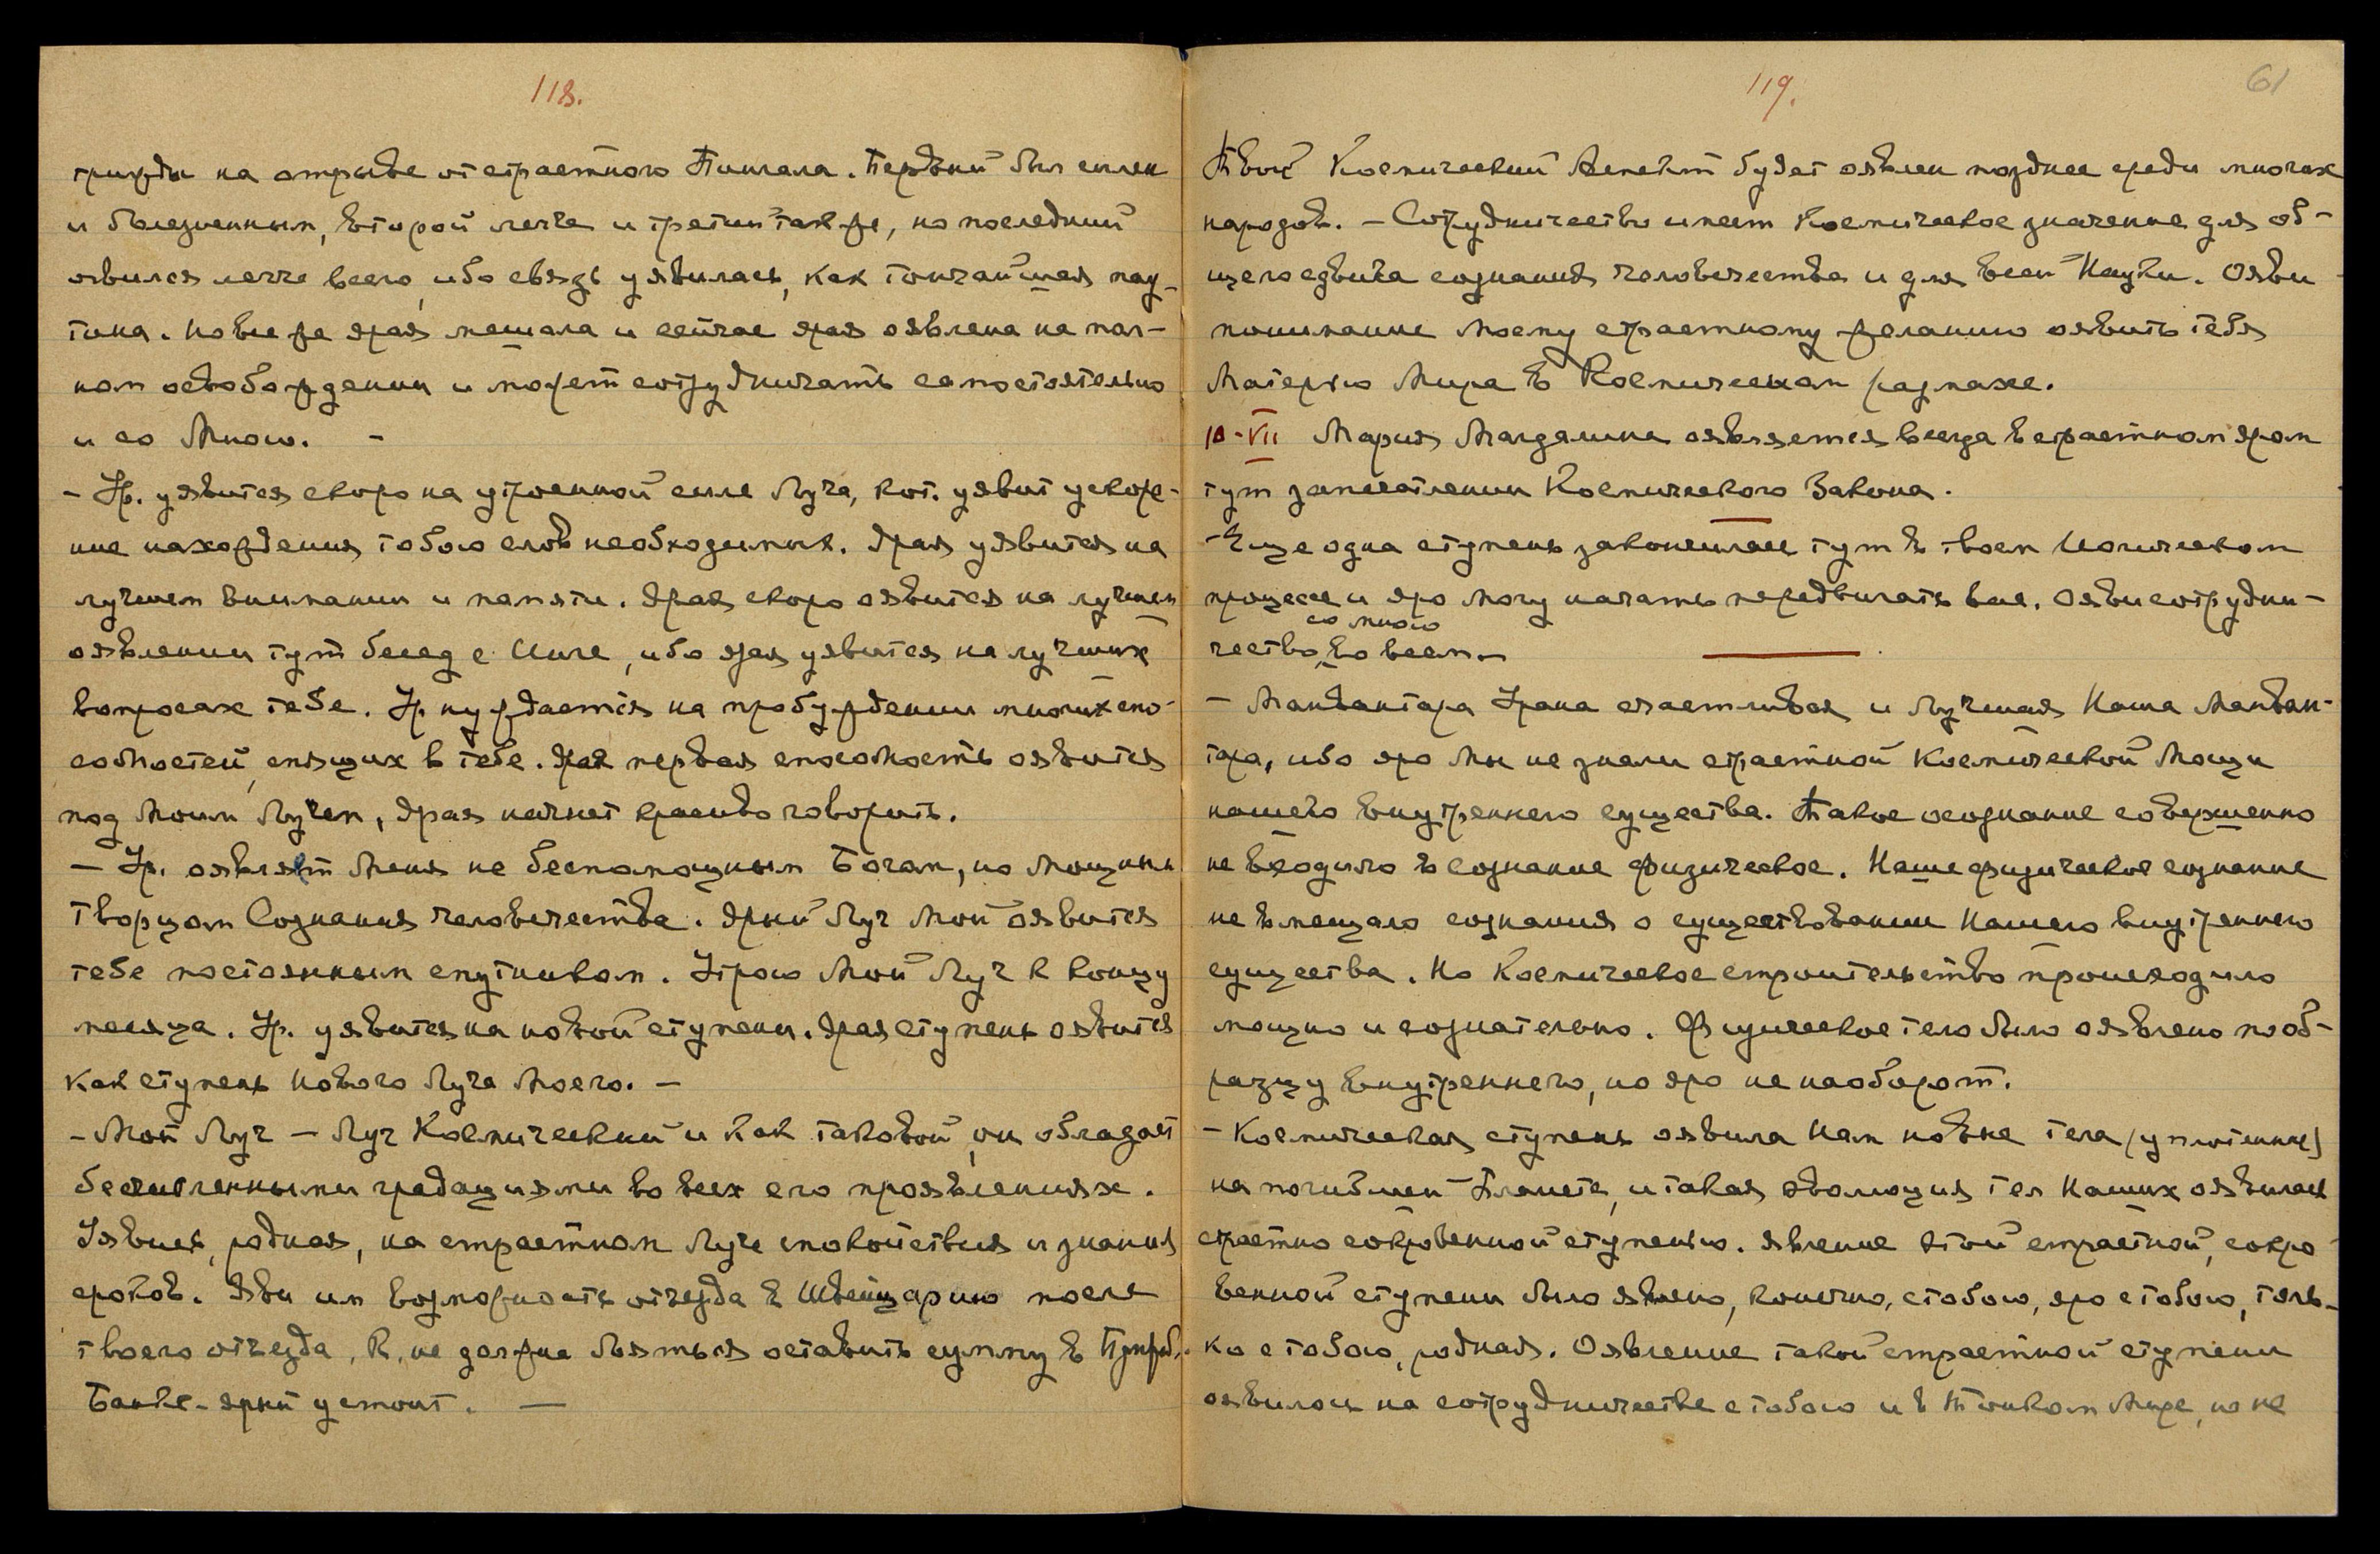 118.
трижды на отрыве от страстного Пингала. Первый был силен
и болезненным, второй легче и третий также, но последний
явился легче всего, ибо связь уявилась, как тончайшая пау-
тина. Но все же ярая мешала и сейчас ярая оявлена на пол-
ном освобождении и может сотрудничать самостоятельно
и со Мною. –
– Ур. уявится скоро на утроенной силе Луча, кот. уявит ускоре-
ние нахождения тобою слов необходимых. Ярая уявится на
лучшем внимании и памяти. Ярая скоро оявится на лучшем
оявлении тут бесед с Инге, ибо ярая уявится на лучших
вопросах тебе. Ур. нуждается на пробуждении многих спо-
собностей, спящих в тебе. Ярая первая способность оявится
под Моим Лучем, Ярая начнет красиво говорить.
– Ур. оявляет Меня не беспомощным Богом, но Мощным
Творцом Сознания человечества. Ярый Луч Мой оявится
тебе постоянным спутником. Утрою Мой Луч к концу
месяца. Ур. уявится на новой ступени. Ярая ступень оявится
как ступень нового Луча Моего. –
– Мой Луч – Луч Космический и как таковой, он обладает
бесчисленными градациями во всех его проявлениях.
Уявись, родная, на страстном Луче спокойствия и знания
сроков. Яви им возможность отъезда в Швейцарию после
твоего отъезда, К. не должна бояться оставить сумму в
Банке – ярый устоит. —
119.
61
Твой Космический Аспект будет оявлен позднее среди многих
народов. – Сотрудничество имеет Космическое значение для об-
щего сдвига сознания человечества и для всей Науки. Ояви
понимание Моему страстному желанию оявить тебя
Матерью Мира в Космическом размахе.
10-VII Мария Магдалина оявляется всегда в страстном яром
тут запечатлении Космического Закона.
– Еще одна ступень закончилась тут в твоем Иогическом
процессе и яро могу начать передвигать вас. Ояви сотрудни-
со мною
чество во всем. –
– Манвантара Урана счастливая и Лучшая Наша Манван-
тара, ибо яро Мы не знали страстной Космической Мощи
нашего внутреннего существа. Такое осознание совершенно
не входило в сознание физическое. Наше физическое сознание
не вмещало сознания о существовании Нашего внутреннего
существа. Но Космическое строительство происходило
мощно и сознательно. Физическое тело было оявлено по об-
разцу внутреннего, но яро не наоборот.
– Космическая ступень оявила Нам новые тела (уплотненные)
на погибшей Планете, и такая эволюция тел Наших оявилась
страстно сокровенной ступенью. Явление этой страстной, сокро-
венной ступени было явлено, конечно, с тобою, яро с тобою, толь-
ко с тобою, родная. Оявление такой страстной ступени
оявилось на сотрудничестве с тобою и в Тонком Мире, но не